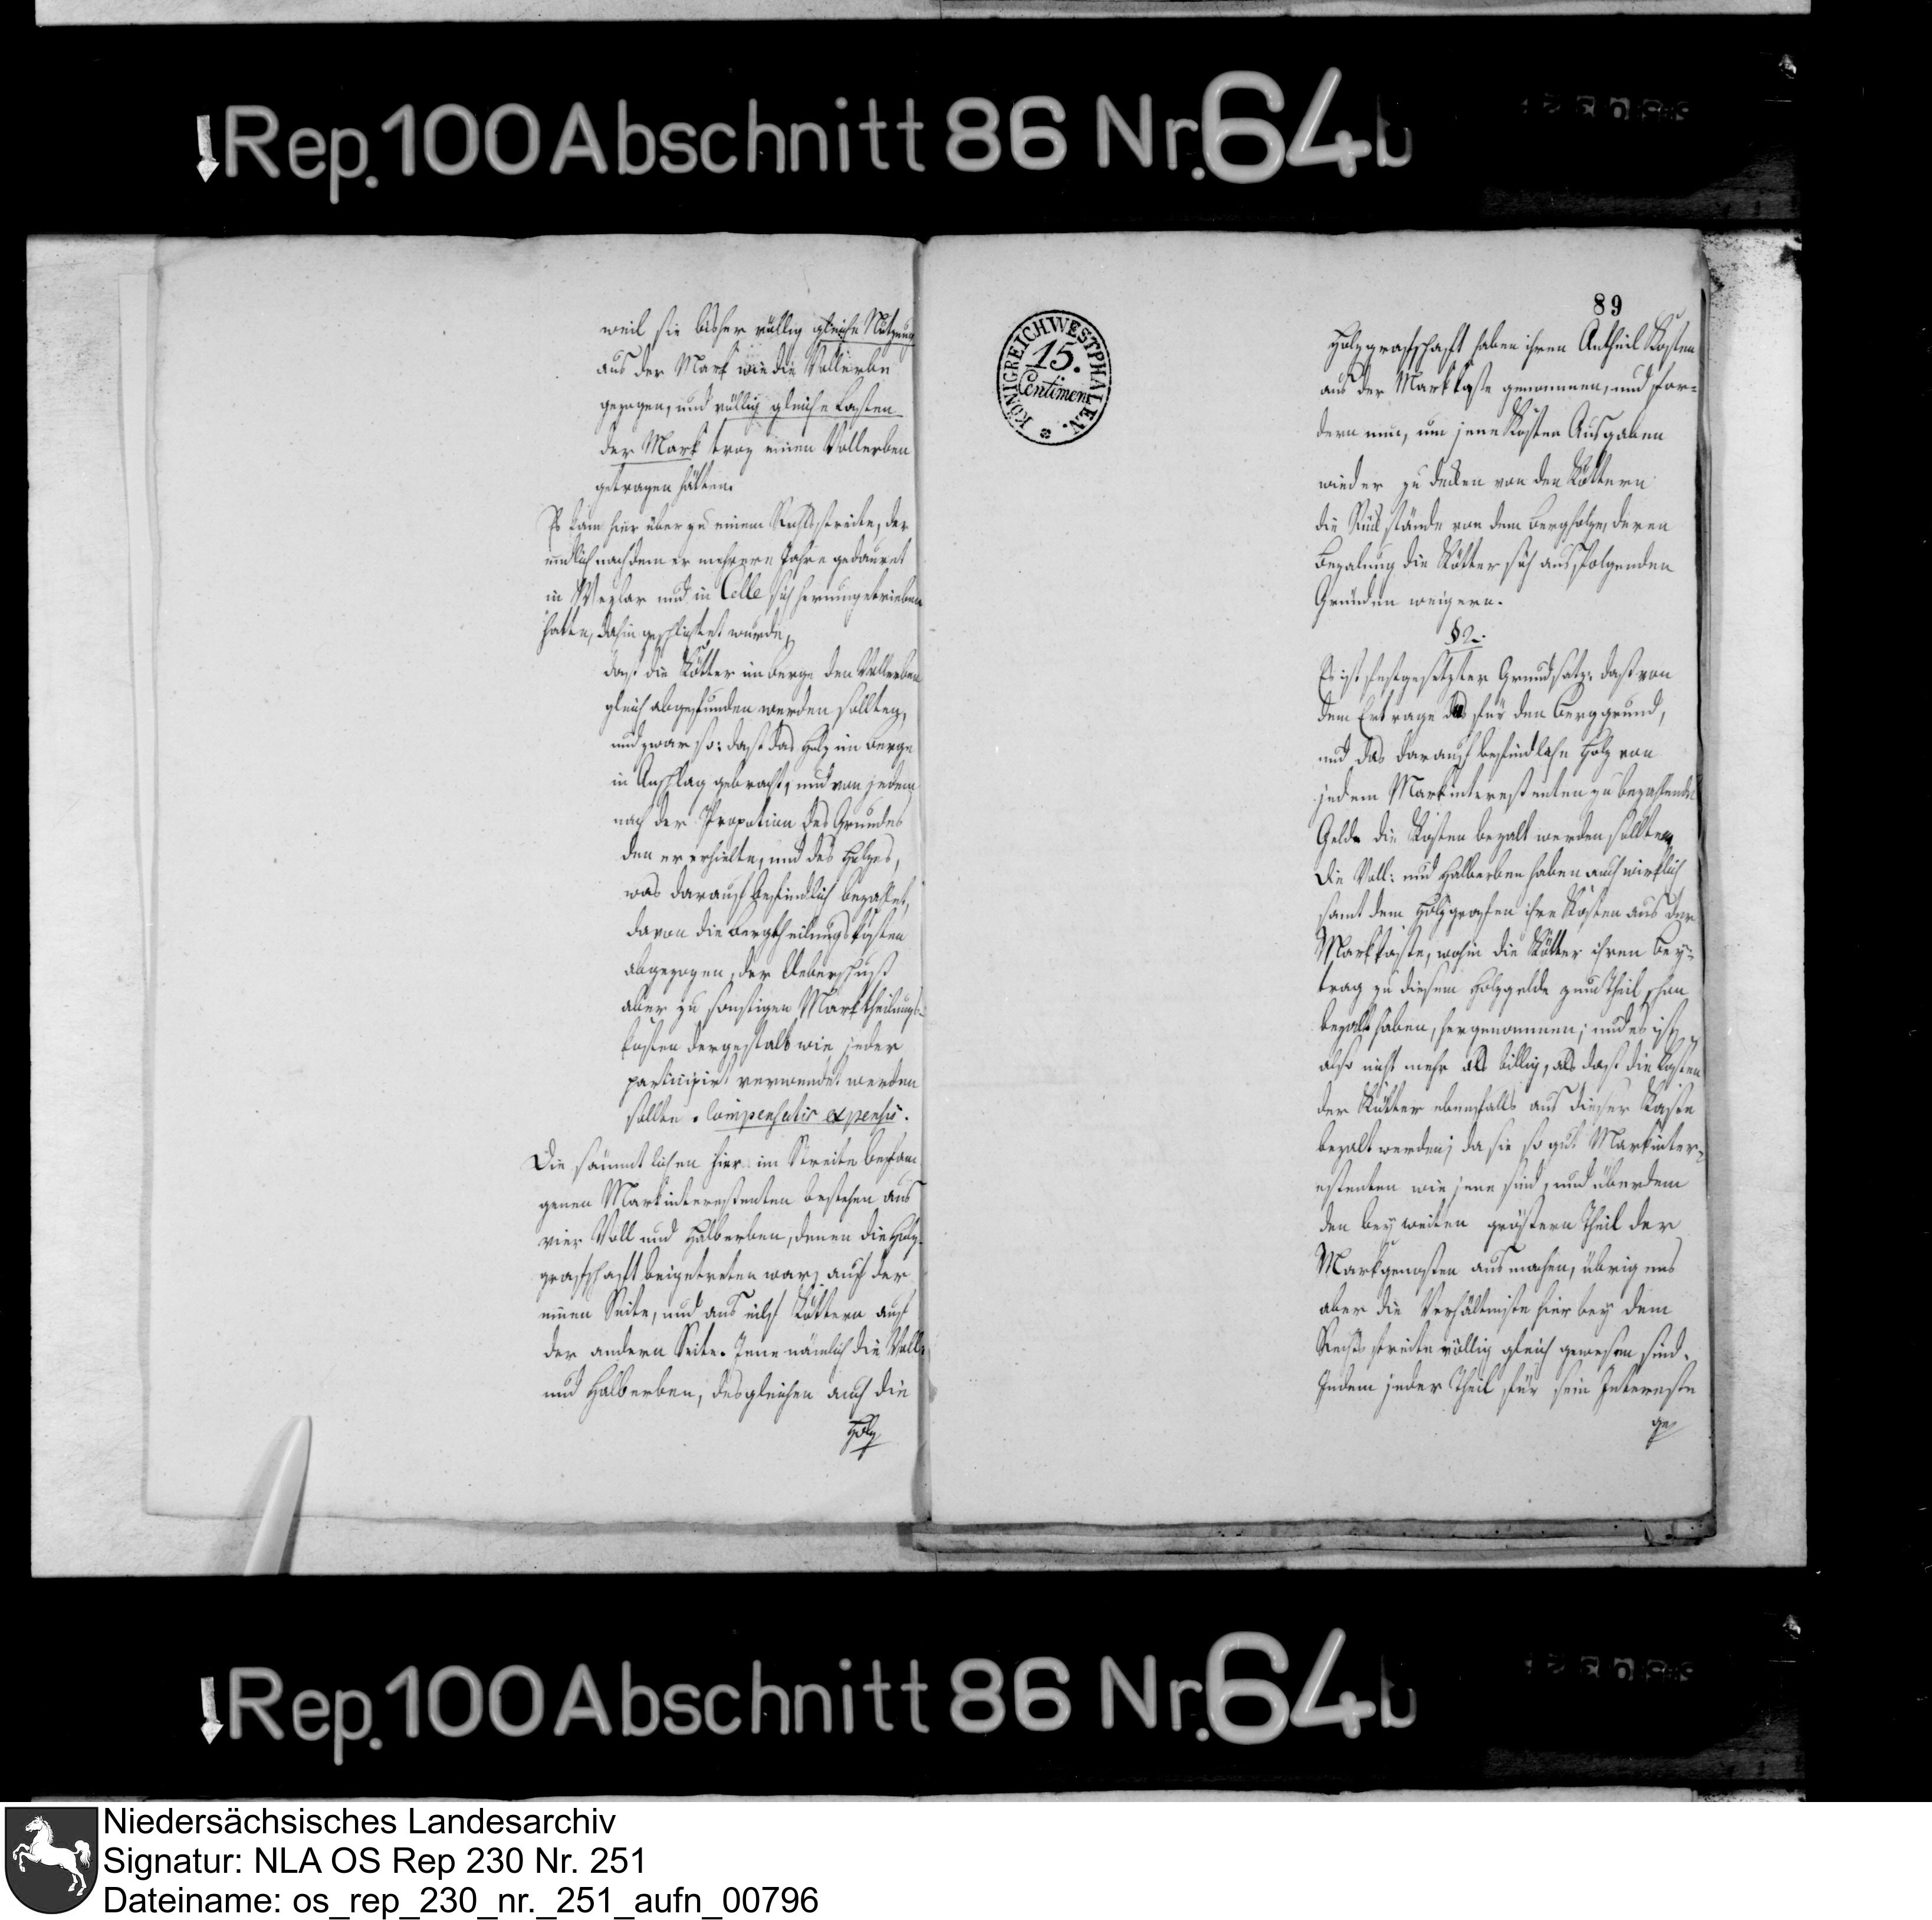 Rep. 100 Abschnitt 86 Nr. 64b
weil sie bisher völlig gleiche Nutzung
aus der Mark wie die Vollerbe
gezogen, und völlig gleiche Lasten
der Mark troz einen Vollerben
getragen hätten.
Es kam hier über zu einem Rechtsstreite, der
endlich nach dem er mehrere Jahre gedauret
in Wezlar und in Celle sich herumgetrieben
hatte, dahin geschlichtet wurde,
dast die Kötter im Berge den Vollerben
gleich abgefunden werden sollten,
und zwar so: dast das Holz im Berge
in Anschlag gebracht, und von jedem
nach der Propotion des Grundes
den er erhielte, und des Holzes,
was darauf befindlich bezahlet,
davon die Bergtheilungs kosten
abgezogen, der Ueberschust
aber zu sonstigen Marktheilungs-
kosten dergestalt wie jeder
participirt verwendet werden
sollte. Compensatis expensis.
Die sämmtlichen hier im Streite befan
genen Markinteressenten bestehen aus
vier Voll und Halberben, denen die Holz-
grafschaft beigetreten war, auf der
einen Seite, und aus eilf Köttern auf
der andern Seite. Jene nämlich die Voll-
und Halberben, desgleichen auch die
Holz
KÖNIGREICH WESTPHALEN.
15.
Centimen
89
Holzgrafschaft haben ihren Antheil Kosten
aus der Markkasse genommen, und for-
dern nun, um jene Kosten Ausgaben
wieder zu decken von den Köttern
die Rückstände von dem Bergholze, deren
Bezalung die Kötter sich aus folgenden
Gründen weigern.
§ 2.
Es ist festgesetzter Grundsatz, dast von
dem Ertrage des für den Berggrund,
und das darauf befindliche Holz von
jedem Markinteressenten zu bezahlenden
Gelde die Kosten bezalt werden sollten,
Die Voll- und Halberben haben auch wirklich
samt dem Holzgrafen ihre Kosten aus der
Markkasse, wohin die Kötter ihren Bey-
trag zu diesem Holzgelde zum Theil schon
bezalt haben, hergenommen; und es ist
also nicht mehr als billig, als dast die Kosten
der Kötter ebenfalls aus dieser Kasse
bezalt werden; da sie so gut Markinter-
essenten wie jene sind, und überdem
den bey weiten größern Theil der
Markgenossen ausmachen, übrigens
aber die Verhältnisse hier bey dem
Rechtsstreite völlig gleich gewesen sind.
Indem jeder Theil für sein Interesse
ge
Rep. 100 Abschnitt 86 Nr. 64b
Niedersächsisches Landesarchiv
Signatur: NLA OS Rep 230 Nr. 251
Dateiname: os_rep_230_nr._251_aufn_00796